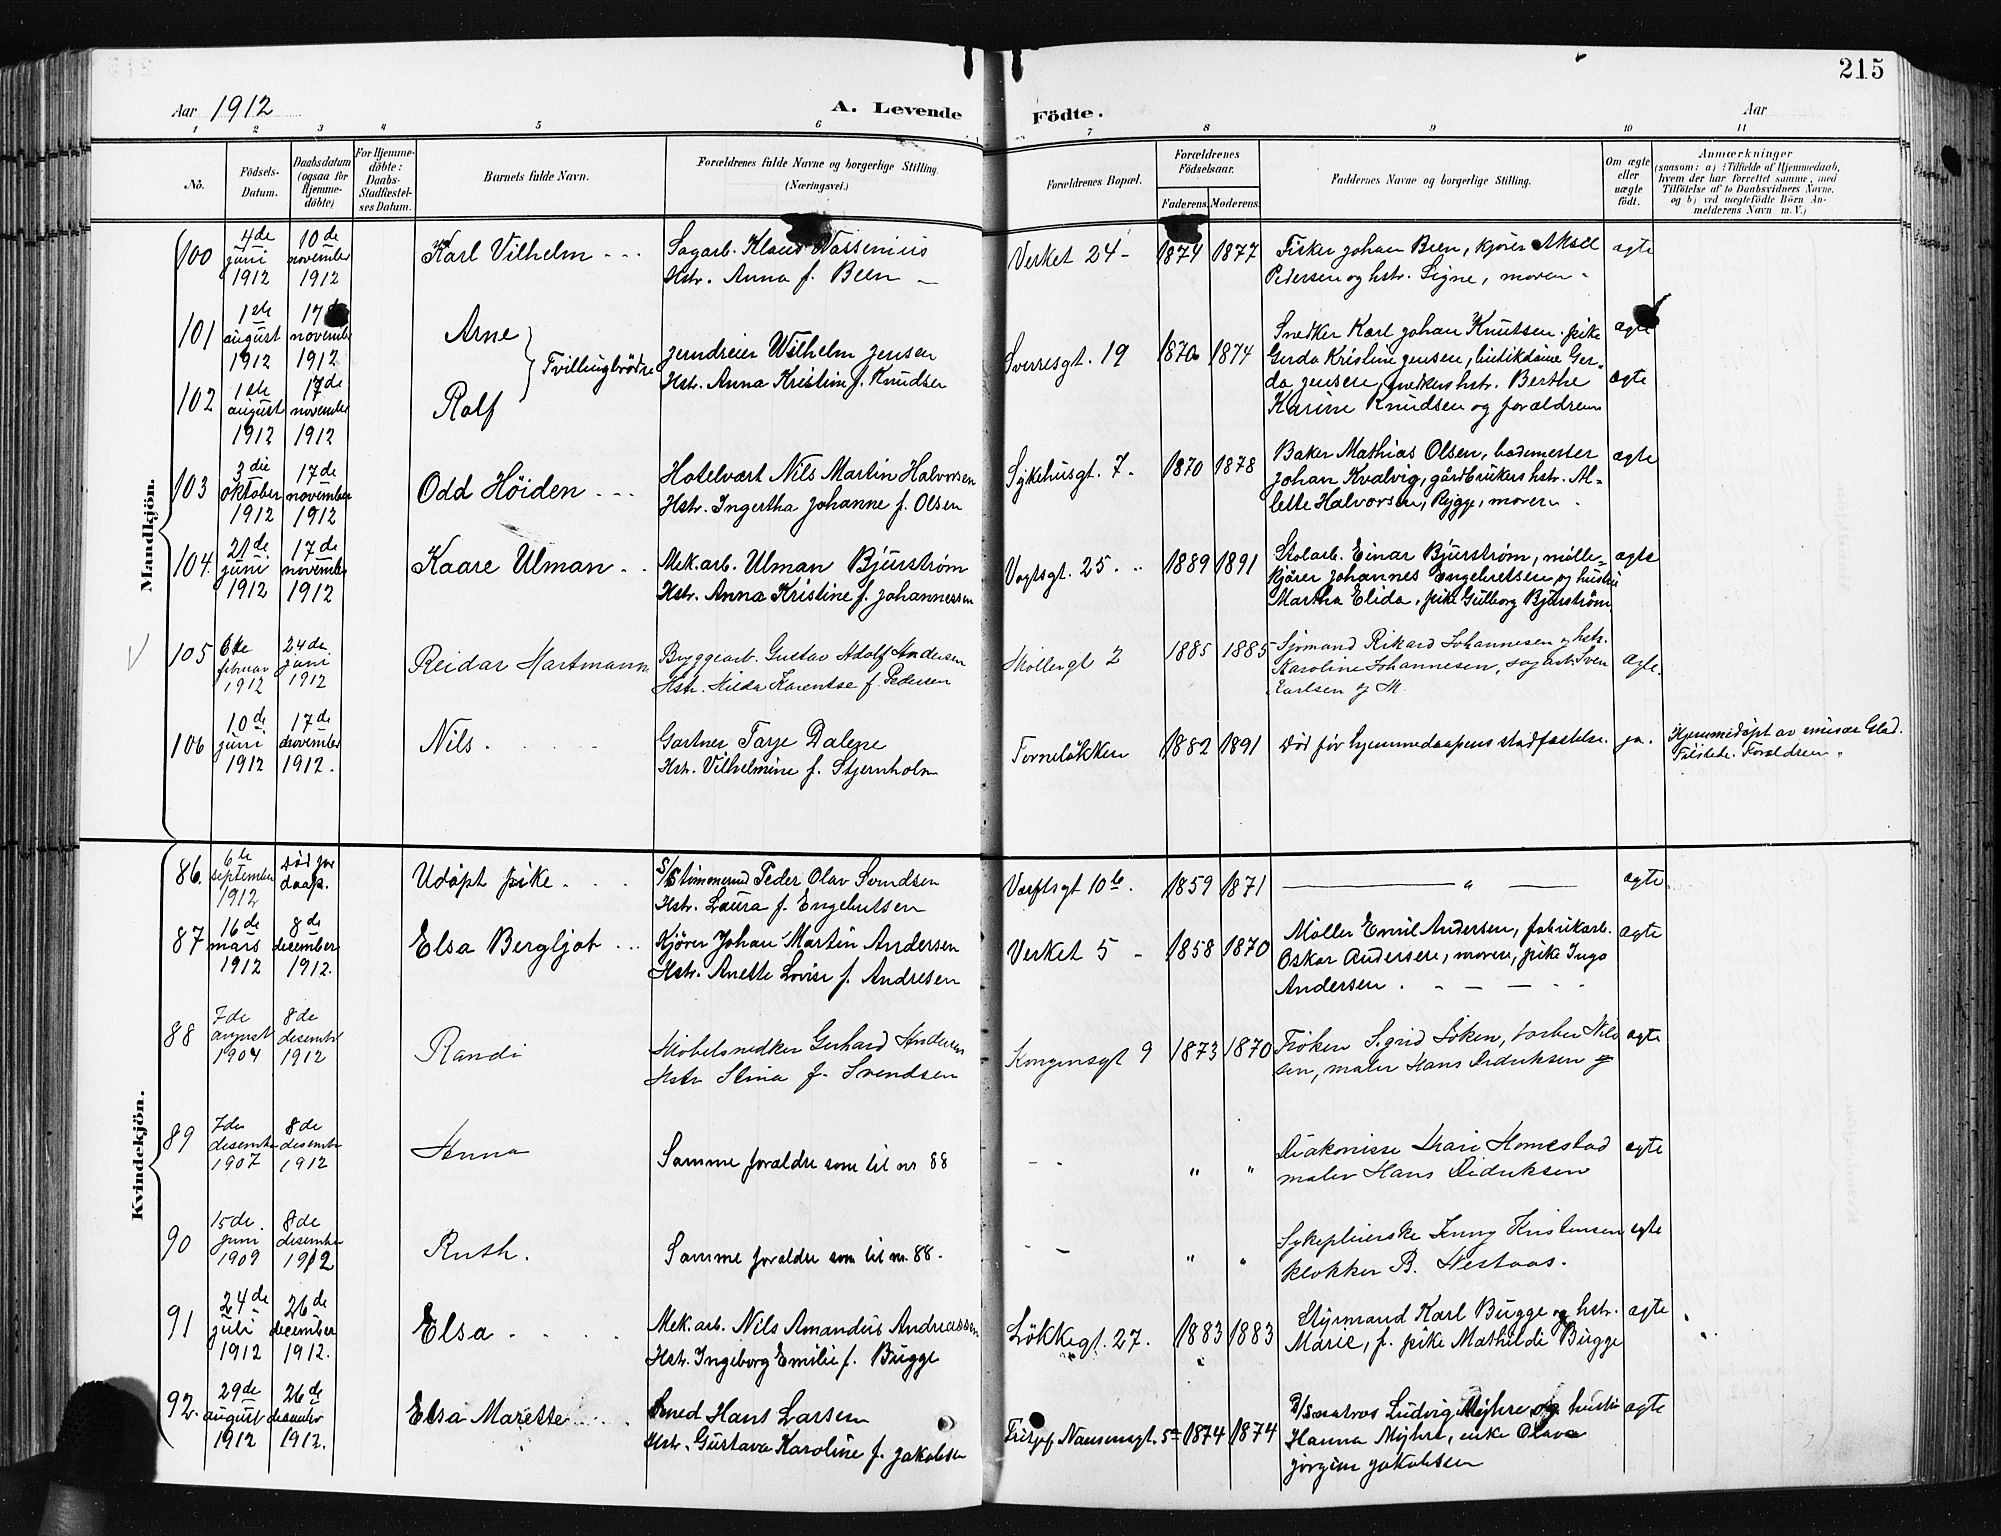 215
Aar 1912
A. Levende
Födte.
Aar
1 2 3 4 5 6 7 8 9 10 11
No.
Födsels-
Datum.
Daabsdatum
(ogsaa for
Hjemme-
döbte)
For Hjemme-
döbte:
Daabs-
Stadfæstel-
ses Datum.
Barnets fulde Navn.
Forældrenes fulde Navne og borgerlige Stilling.
(Næringsvei.)
Forældrenes Bopæl.
Forældrenes
Födselsaar.
Faderens. Moderens.
Faddernes Navne og borgerlige Stilling.
Om ægte
eller
uægte
födt.
Anmærkninger
(saasom: a) i Tilfælde af Hjemmedaab,
hvem der har forrettet samme, med
Tilföielse af to Daabsvidners Navne,
og b) ved uægtefödte Börn An-
melderens Navn m. V.)
Mandkjön.
100
4de
juni
1912
10de
november
1912
Karl Vilhelm
Sagarb. Klaus Wassenius
Hstr. Anna f. Been
Verket 24
1874 1877
Fisker Johan Been, kjører Aksel
Pedersen og hstr. Signe, moren
ægte
101
1ste
august
1912
17de
november
1912
Arne
Tvillingbrödre
Jerndreier Wilhelm Jensen
Hstr. Anna Kristine f. Knudsen
Sverresgt. 19
1870 1874
Snedker Karl Johan Knutsen, pike
Gerda Kristine Jensen, butikdame Ger-
da Jensen, snedkers hstr. Berthe
Karine Knudsen og forældrene
ægte
102
1ste
august
1912
17de
november
1912
Rolf
ægte
103
3die
oktober
1912
17de
november
1912
Odd Höiden
Hotelvært Nils Martin Halvorsen
Hstr. Ingertha Johanne f. Olsen
Sykehusgt. 7
1870 1878
Baker Mathias Olsen, bademester
Johan Kvalvig, gårdbrukers hstr. Al-
lette Halvorsen, Rygge, moren
ægte
104.
21de
juni
1912
17de
november
1912
Kaare Ulman
Mek. arb. Ulman Bjurstrøm
Hstr. Anna Kristine f. Johannessen
Vogtsgt. 25
1889 1891
Stolarb. Einar Bjurstrøm, mølle-
kjører Johannes Engebretsen og hustru
Martha Elida, pike Gulborg Bjurstrøm
ægte
105
6te
februar
1912
24de
juni
1912
Reidar Hartmann
Bryggearb. Gustav Adolf Andersen
Hstr. Hilda Karentse f. Pedersen
Møllergt 2
1885 1885
Sjømand Rikard Johannesen og hstr.
Karoline Johannesen, sagarb. Sven
Karlsen og M.
ægte
106
10de
juni
1912
17de
november
1912.
Nils
Gartner Tarje Dalene
Hstr. Vilhelmine f. Stjernholm
Torneløkken
1882 1891
Død før hjemmedaapens stadfæstelse
ja.
Hjemmedøpt av
Forældrene
Kvindekjön.
86.
6te
september
1912
Død før
daap.
Udøpt pike
S/S timmermd Peder Olav Svendsen
Hstr. Laura f. Engebretsen
Værftsgt 10b.
1859 1871
"
ægte
87
16de
mars
1912
8de
december
1912.
Elsa Bergljot
Kjører Johan Martin Andersen
Hstr. Anette Lovise f. Andresen
Verket 5
1858 1870
Møller Emil Andersen, fabrikarb.
Oskar Andersen, moren, pike Inga
Andersen
ægte
88
7de
august
1904
8de
desember
1912
Randi
Møbelsnedker Gerhard Andersen
Hstr Stina f. Svendsen
Kongensgt 9
1873 1870
Frøken Sigrid Løken, Nils
sen, maler Hans Didriksen
ægte
89
7de
desember
1907
8de
desember
1912
Anna
Samme foraldre som til nr 88
" "
Diakonisse Mari Homestad
maler Hans Didriksen
ægte
90
15de
juni
1909
8de
desember
1912
Ruth.
Samme foraldre som til nr. 88.
" "
Sykepleierske Jenny Kristensen
klokker B. Hestaas.
egte
91
24de
juli
1912
26de
december
1912.
Elsa
Mek. arb. Nils Amandus Andreassen
Hstr. Ingeborg Emilie f. Bugge
Løkkegt. 27.
1883 1883
Styrmand Karl Bugge og hstr.
Marie, f. pike Mathilde Bugge
ægte
92.
29de
august
1912
26de
desember
1912.
Elsa Marette
Smed Hans Larsen
Hstr. Gustava Karoline f. Jakobsen
Fritjof Nansensgt. 5
1874 1874
D/S matros Ludvig Myhre og hustru
Hanna Myhre, enke Olava
Jørgine Jakobsen
ægte